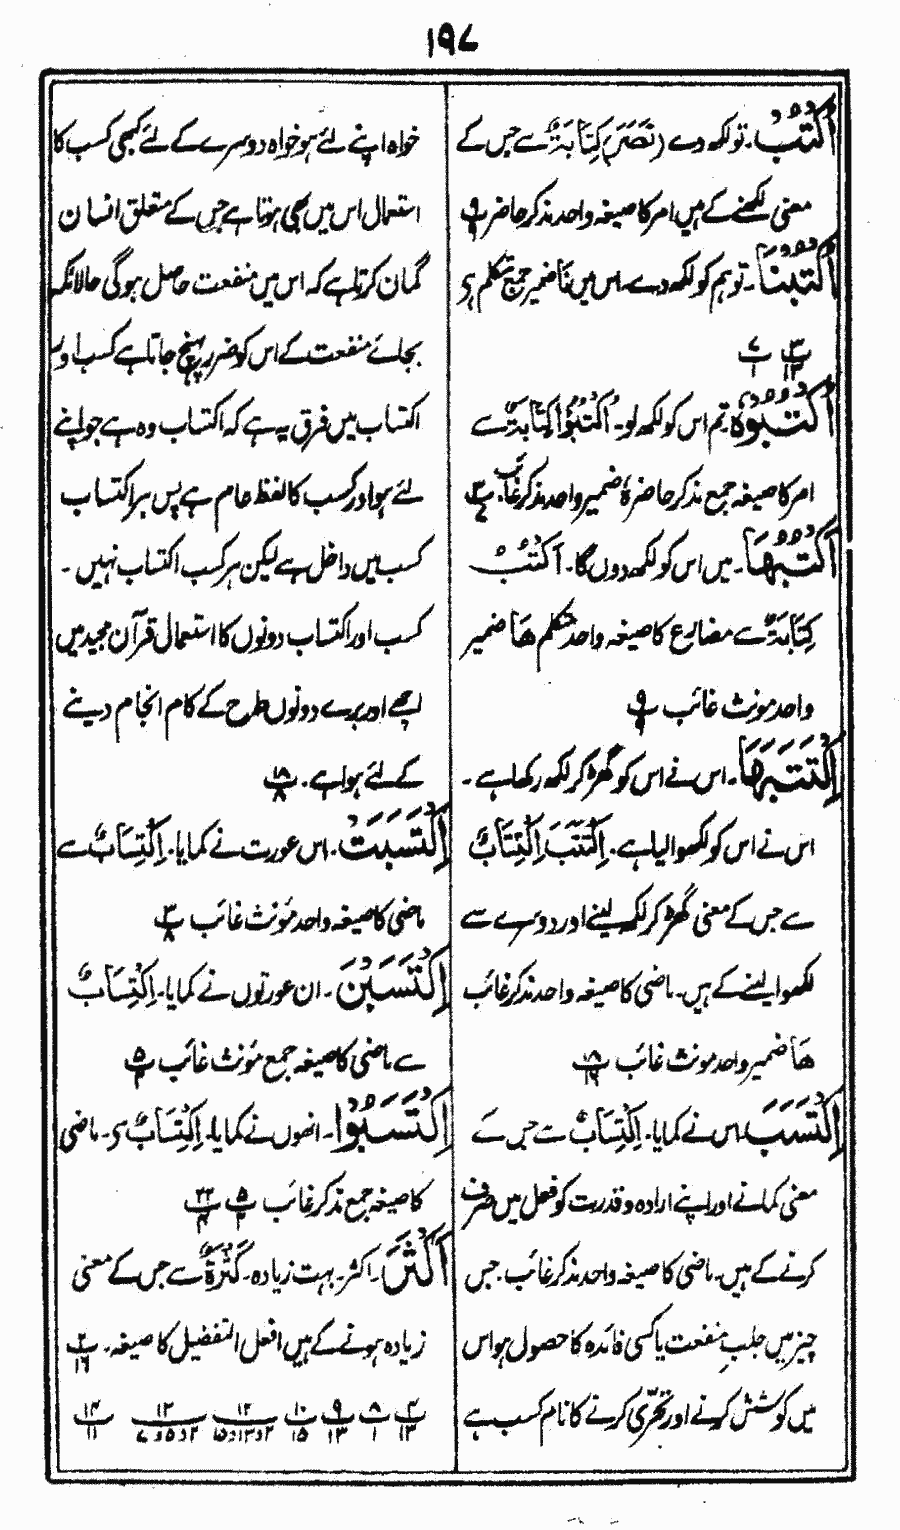 ۱۹۷
اُكْتُبْ۔ تو لکھ دے (نَصَرَ) كِتَابَةٌ سے جس کے
معنی لکھنے کے ہیں امر کا صیغہ واحد مذکر حاضر پ ۹
اُكْتُبْنَا۔ تو ہم کو لکھ دے۔ اس میں نَا ضمیر جمع متکلم ہی
پ ۳/۱۳ پ ۷/۱
اُكْتُبُوْهُ تم اس کو لکھ لو۔ اُكْتُبُوْا كِتَابَةٌ سے
امر کا صیغہ جمع مذکر حاضر هُ ضمیر واحد مذکر غائب۔ پ ۳
اَكْتُبُهَا۔ میں اس کو لکھ دوں گا۔ اَكْتُبُ
كِتَابَةٌ سے مضارع کا صیغہ واحد متکلم هَا ضمیر
واحد مونث غائب پ ۹
اِكْتَتَبَهَا۔ اس نے اس کو گھڑ کر لکھ رکھا ہے۔
اس نے اس کو لکھوا لیا ہے۔ اِكْتَتَبَ اِكْتِتَابٌ
سے جس کے معنی گھڑ کر لکھ لینے اور دوسرے سے
لکھوا لینے کے ہیں۔ ماضی کا صیغہ واحد مذکر غائب
هَا ضمیر واحد مونث غائب پ ۱۸/۱۶
اِكْتَسَبَ اس نے کمایا۔ اِكْتِسَابٌ سے جس کے
معنی کمانے اور اپنے ارادہ و قدرت کو فعل میں صرف
کرنے کے ہیں۔ ماضی کا صیغہ واحد مذکر غائب۔ جس
چیز میں جلب منفعت یا کسی فائدہ کا حصول ہو اس
میں کوشش کرنے اور تحرّی کرنے کا نام کسب ہے
خواہ اپنے لئے ہو خواہ دوسرے کے لئے کبھی کسب کا
استعمال اس میں بھی ہوتا ہے جس کے متعلق انسان
گمان کرتا ہے کہ اس میں منفعت حاصل ہوگی حالانکہ
بجائے منفعت کے اس کو ضرر پہنچ جاتا ہے کسب اور
اکتساب میں فرق یہ ہے کہ اکتساب وہ ہے جو اپنے
لئے ہو اور کسب کا لفظ عام ہے پس ہر اکتساب
کسب میں داخل ہے لیکن ہر کسب اکتساب نہیں۔
کسب اور اکتساب دونوں کا استعمال قرآن مجید میں
اچھے اور برے دونوں طرح کے کام انجام دینے
کے لئے ہوا ہے۔ پ ۱۸/۸
اِكْتَسَبَتْ۔ اس عورت نے کمایا۔ اِكْتِسَابٌ سے
ماضی کا صیغہ واحد مؤنث غائب پ ۳/۸
اِكْتَسَبْنَ۔ ان عورتوں نے کمایا۔ اِكْتِسَابٌ
سے ماضی کا صیغہ جمع مؤنث غائب پ ۵/۲
اِكْتَسَبُوْا۔ انھوں نے کمایا۔ اِكْتِسَابٌ سی۔ ماضی
کا صیغہ جمع مذکر غائب پ ۵/۲ پ ۲۲/۴
اَكْثَرَ۔ اکثر۔ بہت زیادہ۔ كَثْرَةٌ سے جس کے معنی
زیادہ ہونے کے ہیں افعل التفضیل کا صیغہ۔ پ ۲/۱۶
پ ۴/۱۳ پ ۸/۱ پ ۹/۱۳ پ ۱۰/۱۵ پ ۱۲/۲و۱۳و۱۵ پ ۱۳/۲و۵و۷ پ ۱۴/۱۱